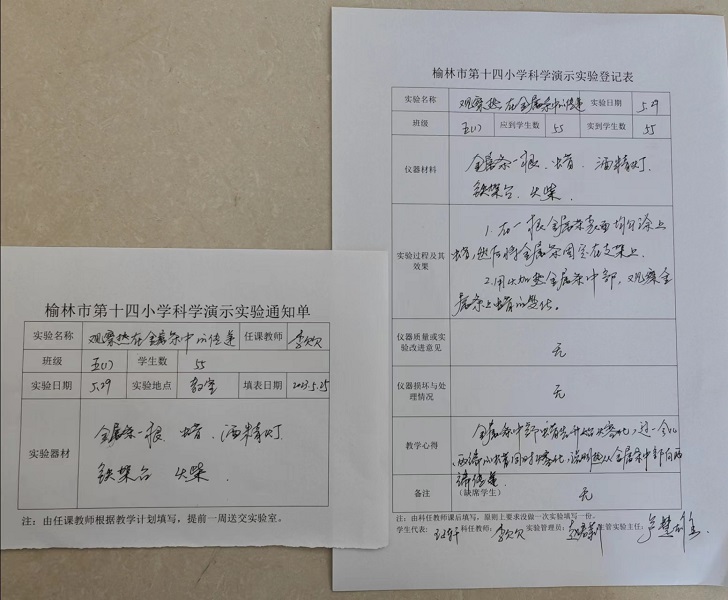 榆林市第十四小学科学演示实验通知单
实验名称 观察热在金属条中的传递 任课教师 李欠欠
班级 五(1) 学生数 55
实验日期 5.29 实验地点 教室 填表日期 2023.5.25
实验器材
金属条一根 蜡 酒精灯
铁架台 火柴
注：由任课教师根据教学计划填写，提前一周送交实验室。
榆林市第十四小学科学演示实验登记表
实验名称 观察热在金属条中的传递 实验日期 5.29
班级 五(1) 应到学生数 55 实到学生数 55
仪器材料
金属条一根、蜡、酒精灯
铁架台、火柴
实验过程及其效果
1.在一根金属条表面均匀涂上
蜡，然后将金属条固定在支架上
2.用火加热金属条中部，观察金
属条上蜡的变化。
仪器质量或实验改进意见 无
仪器损坏与处理情况 无
教学心得
金属条中部蜡先开始熔化，过一会儿
两端的蜡同时熔化，说明热从金属条中部向两
端传递
备注 (缺席学生) 无
注：由科任教师课后填写，原则上要求没做一次实验填写一份。
学生代表： 科任教师：李欠欠 实验管理员： 主管实验主任：